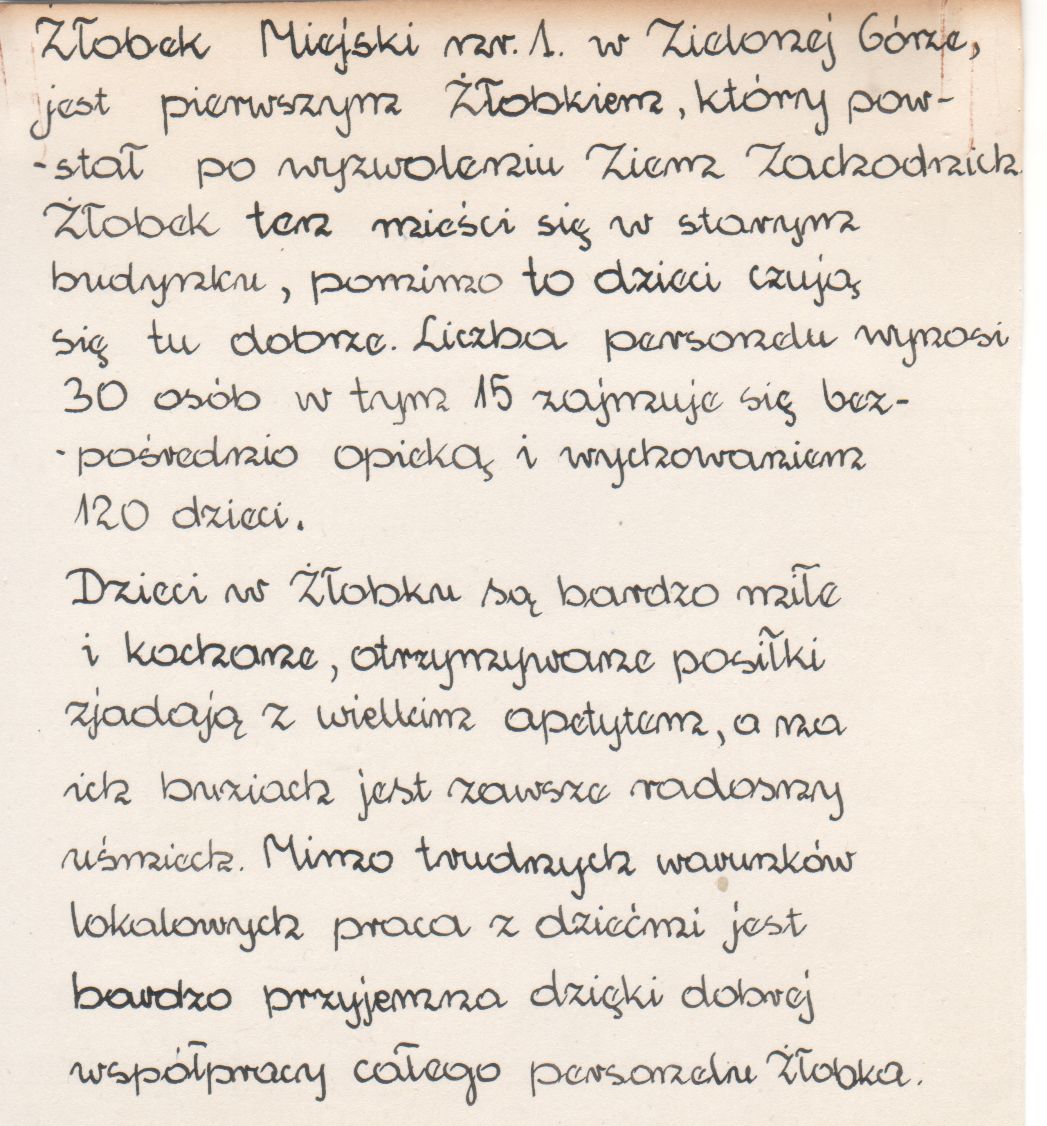 Żłobek Miejski nr. 1. w Zielonej Górze,
jest pierwszym Żłobkiem, który pow-
-stał po wyzwoleniu Ziem Zachodnich.
Żłobek ten mieści się w starym
budynku, pomimo to dzieci czują
się tu dobrze. Liczba personelu wynosi
30 osób w tym 15 zajmuje się bez-
-pośrednio opieką i wychowaniem
120 dzieci.
Dzieci w Żłobku są bardzo miłe
i kochane, otrzymywane posiłki
zjadają z wielkim apetytem, a na
ich buziach jest zawsze radosny
uśmiech. Mimo trudnych warunków
lokalowych praca z dziećmi jest
bardzo przyjemna dzięki dobrej
współpracy całego personelu Żłobka.